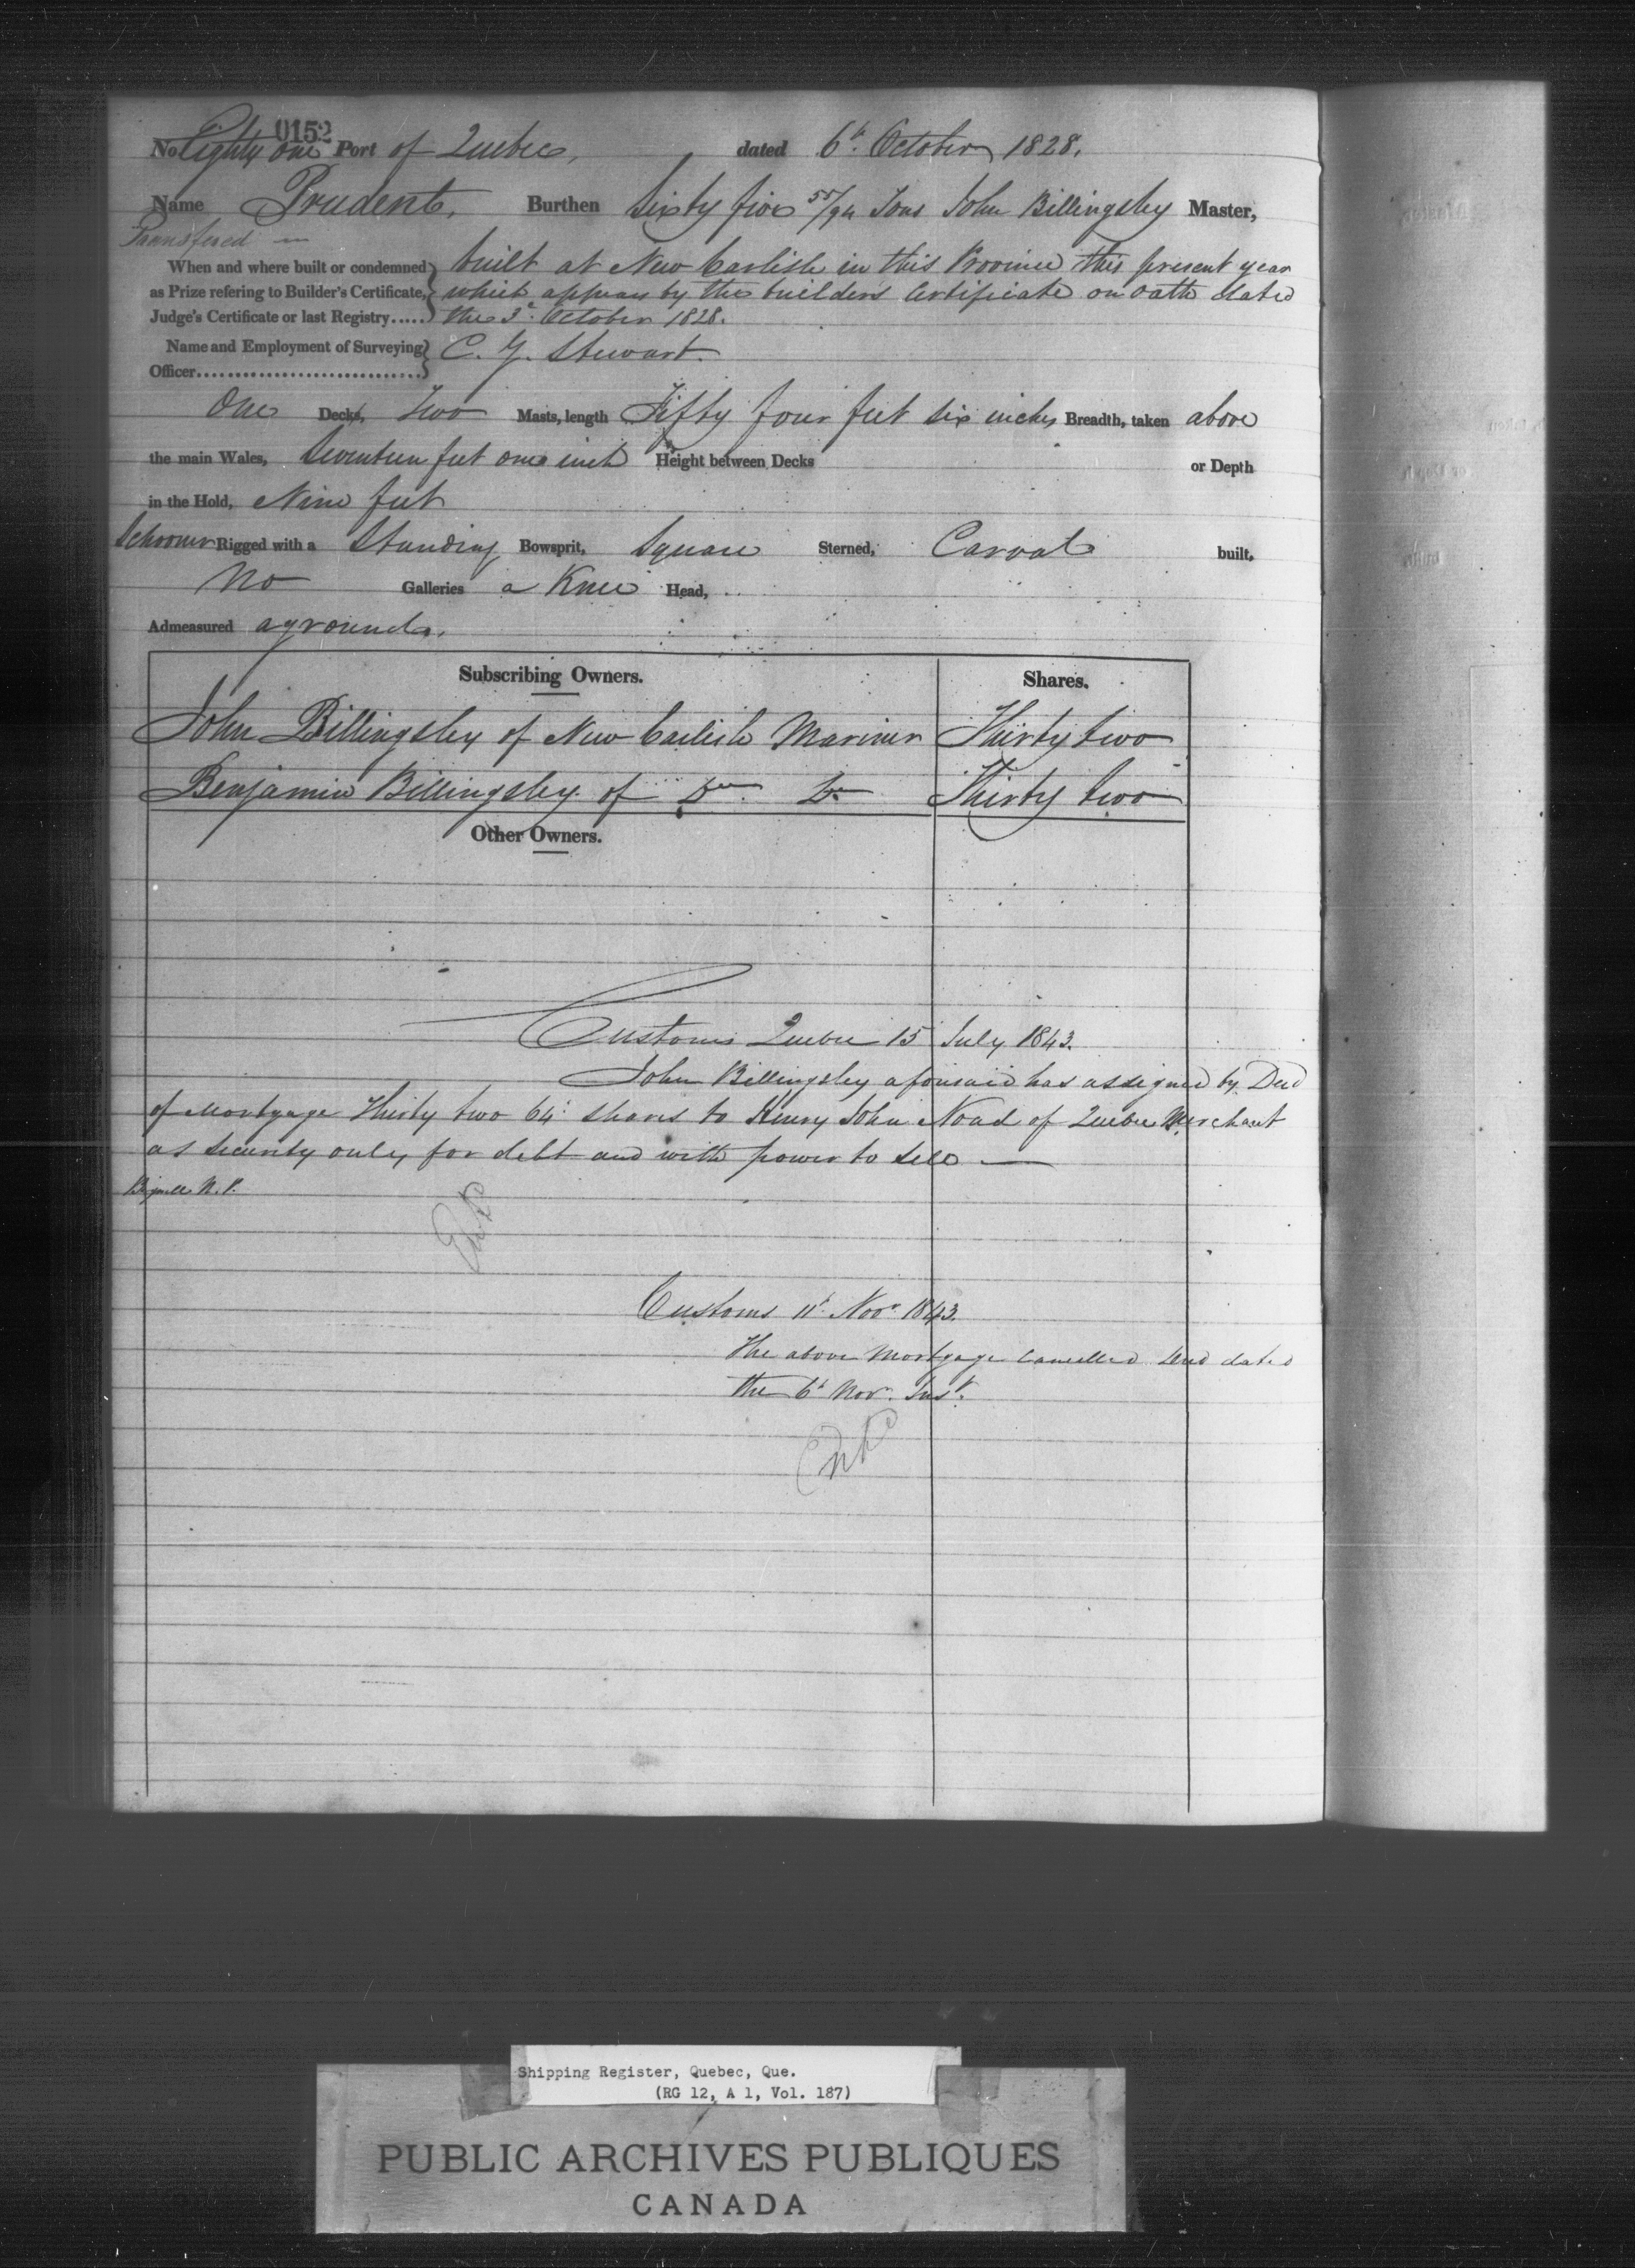 0152
No Eighty one Port of Quebec, dated 6t. October 1828.
Name Prudent, Burthen Sixty five 55/94 Tons John Billingsley Master,
Transfered
When and where built or condemned built at New Carlisle in this Province this present year
as Prize refering to Builder's Certificate, which appears by the builders Certificate on oath dated
Judge's Certificate or last Registry..... the 3d. October 1828.
Name and Employment of Surveying C. G. Stewart.
Officer..............................
One Decks, Two Masts, length Fifty four feet six inches Breadth, taken above
the main Wales, Seventeen feet one inch Height between Decks or Depth
in the Hold, Nine feet
Schooner Rigged with a Standing Bowsprit, Square Sterned, Carval built,
No Galleries a Knee Head,
Admeasured aground.
Subscribing Owners. Shares.
John Billingsley of New Carlisle Mariner Thirty two
Benjamin Billingsley of Do. Do Thirty two
Other Owners.
Customs Quebec 15 July 1843.
John Billingsley aforesaid has assigned by Deed
of Mortgage Thirty two 64t. shares to Henry John Noad of Quebec Merchant
as security only, for debt and with power to sell
N.P.
Customs 11t. Novr. 1843.
The above Mortgage Cancelled Deed dated
the 6t Novr. Inst.
Shipping Register, Quebec, Que.
(RG 12, A 1, Vol. 187)
PUBLIC ARCHIVES PUBLIQUES
CANADA